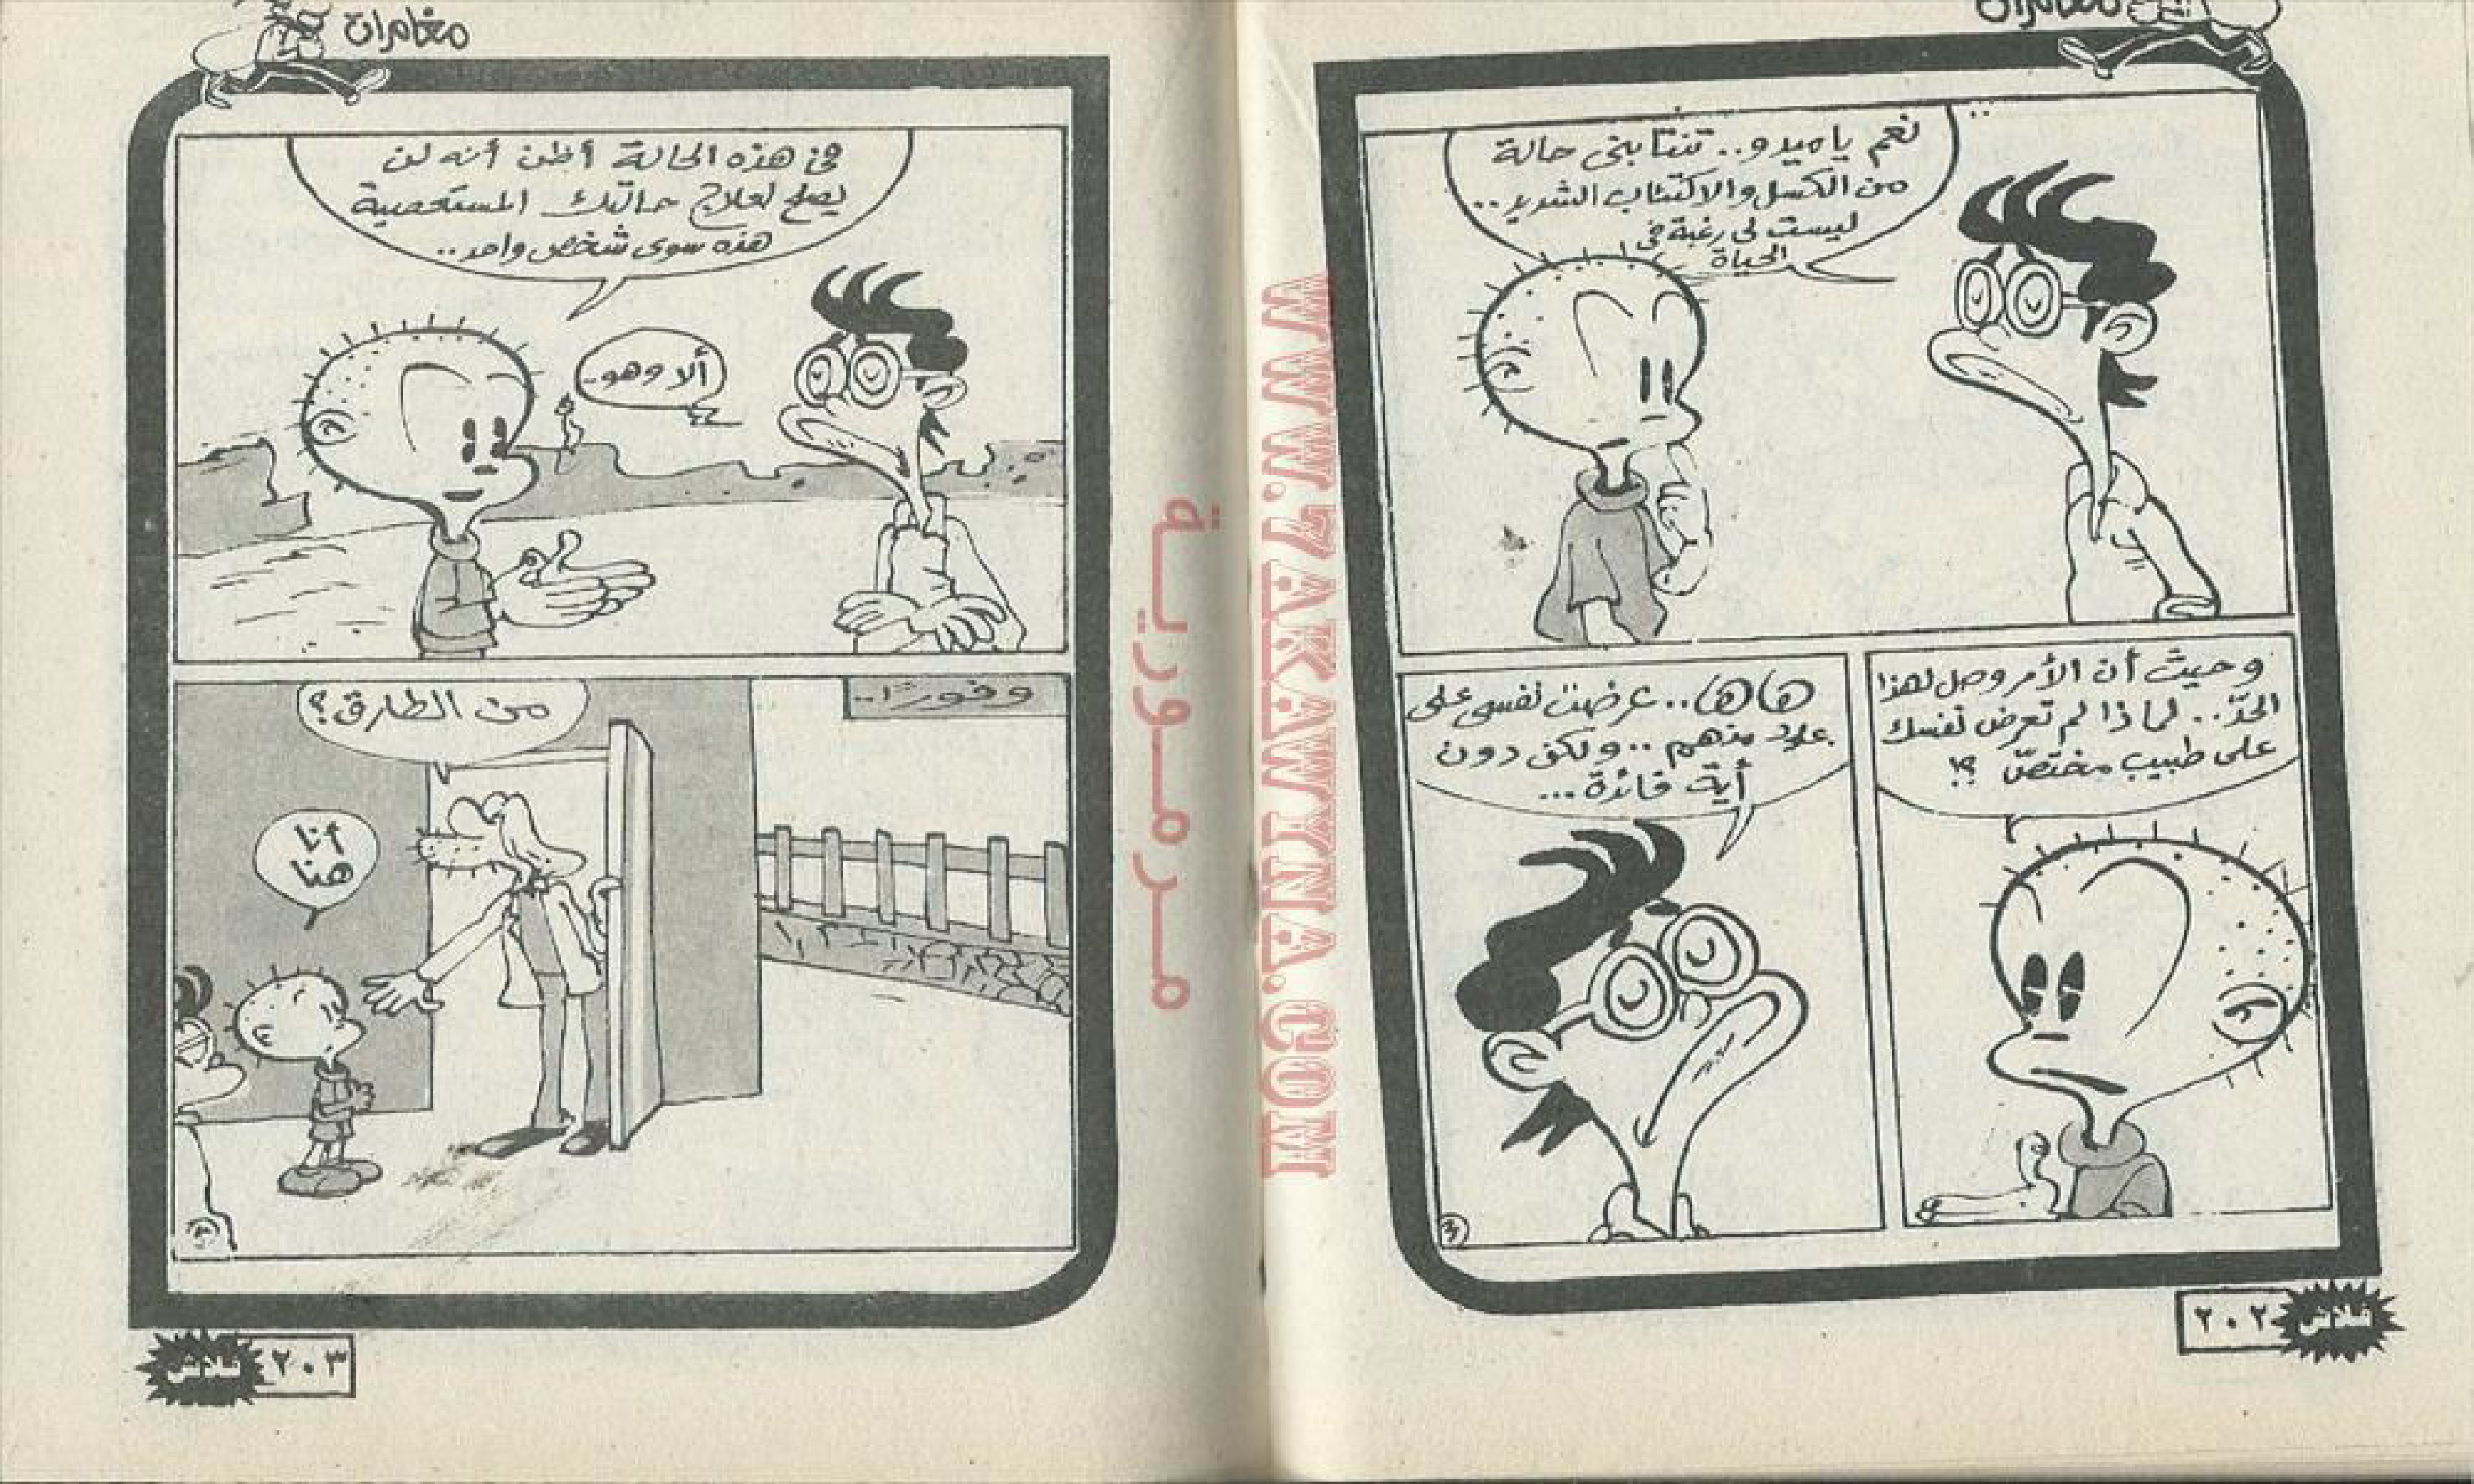 مغامرات
نعم يا ميدو.. تنتابنى حالة
من الكسل والاكتئاب الشديد..
ليست لى رغبة فى
الحياة
وحيث أن الأمر وصل لهذا
الحدّ.. لماذا لم تعرض نفسك
على طبيب مختصّ ؟!
هاها.. عرضت نفسى على
عدد منهم.. ولكن دون
أية فائدة...
٣
٢٠٢
فلاش
مغامرات
فى هذه الحالة أظن أنه لن
يصلح لعلاج حالتك المستعصية
هذه سوى شخص واحد..
ألا وهو..
وفورًا..
من الطارق؟
أنا
هنا
٢٠٣
فلاش
مـرمـوريـة
WWW.ZAKAWTNA.COM